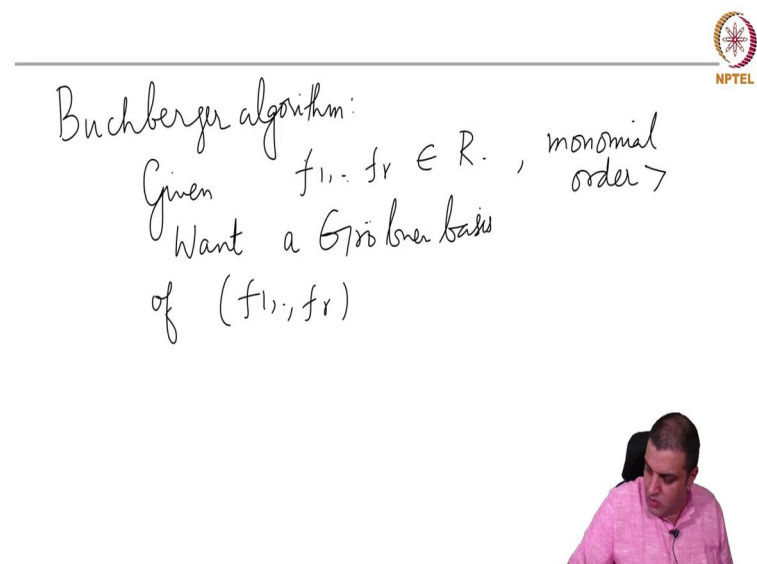 NPTEL
Buchberger algorithm:
Given f1,.. fr ∈ R. , monomial
order >
Want a Gröbner basis
of (f1,.., fr)